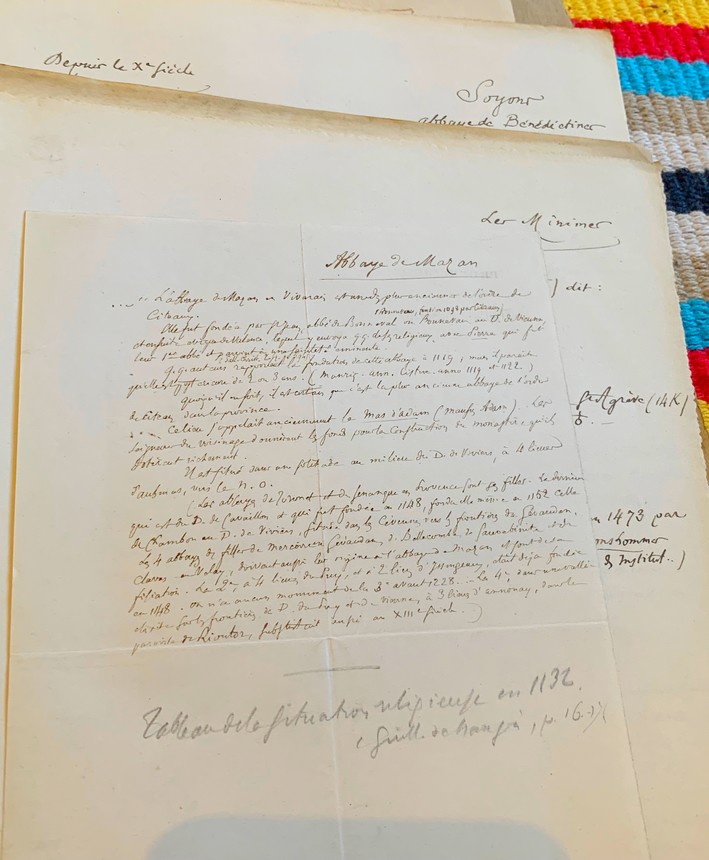 Depuis le Xe siècle
Soyons
abbaye de Bénédictines
Les Minimes
Abbaye de Mazan
L'abbaye de Mazan en Vivarais est un des plus anciennes de l'ordre de
Citeaux.
Elle fut fondée par St Jean, abbé de Bonneval ou Bonnevau au D. de Vienne
et ensuite évêque de Valence, lequel y envoya q.q. de ses religieux, avec Pierre qui fut
leur 1er abbé et
q.q. auteurs rapportent la fondation de cette abbaye à 1119, mais il paraît
qu'elle encore de 2 ou 3 ans. (Manriq. ann. Cisterc. anno 1119 et 1122)
Quoiqu'il en soit, il est certain que c'est la plus ancienne abbaye de l'ordre
de Citeaux dans la province.
Ce lieu s'appelait anciennement le Mas d'adam (mansus Adam). Les
Seigneurs du voisinage donnèrent les fonds pour la construction du monastère qu'ils
dotèrent richement.
Il est situé dans une solitude au milieu du D. de Viviers, à 4 lieues
d'aubenas, vers le N. O.
(Les abbayes de Toronet et de Senanque en Provence sont ses filles. La dernière
qui est du D. de Cavaillon et qui fut fondée en 1148, fonda elle-même en 1152 celle
de Chambon au D. de Viviers, située dans les Cévennes vers les frontières du Gévaudan.
Les 4 abbayes de filles de Mercoire en Gévaudan, de Bellecombe, de Sauvebénite et de
Clavas en Velay, doivent aussi leur origine à l'abbaye de Mazan et sont de sa
filiation. La 2e, à 4 lieues du Puy, et à 2 lieues d'Yssingeaux, était déjà fondée
en 1148. On n'a aucun monument de la 3e avant 1228. - La 4e dans une vallée
étroite sur les frontières de D. du Puy et de Vienne, à 3 lieues d'annonay, dans la
paroisse de Riotor, subsistait aussi au XIIIe siècle.)
Tableau de la situation religieuse en 1132.
p. 16.
dit :
St Agrève (14K)
en 1473 par
Institut..)